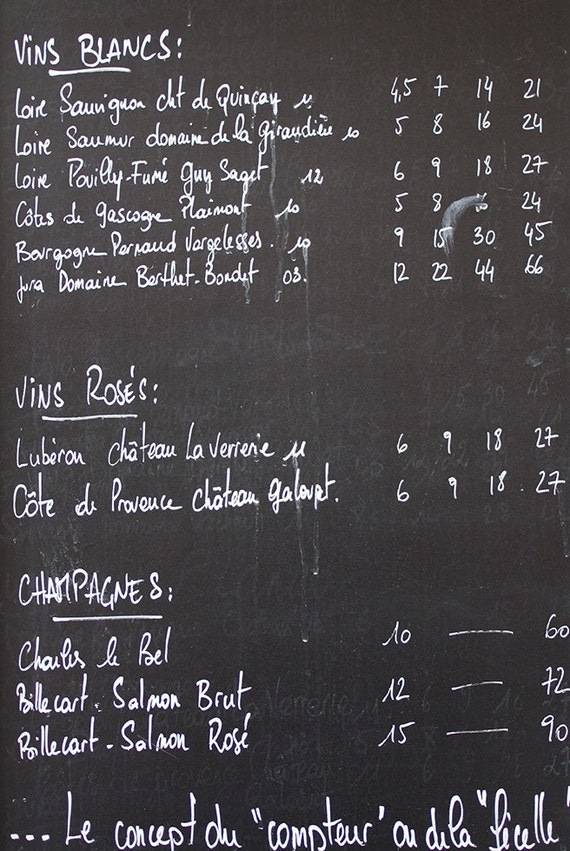 Vins Blancs:
Loire Sauvignon cht de Quinçay 11 4,5 7 14 21
Loire Saumur domaine de la Giraudière 10 5 8 16 24
Loire Pouilly-Fumé Guy Saget 12 6 9 18 27
Côtes de Gascogne Plaimont 10 5 8 24
Bourgogne Pernand Vergelesses. 10 9 15 30 45
Jura Domaine Berthet-Bondet 03. 12 22 44 66
Vins Rosés:
Lubéron Château La Verrerie 11 6 9 18 27
Côte de Provence Château Galoupt. 6 9 18 27
CHAMPAGNES:
Charles le Bel 10 — 60
Billecart-Salmon Brut 12 — 72
Billecart-Salmon Rosé 15 — 90
... Le concept du "compteur" ou de la "ficelle"